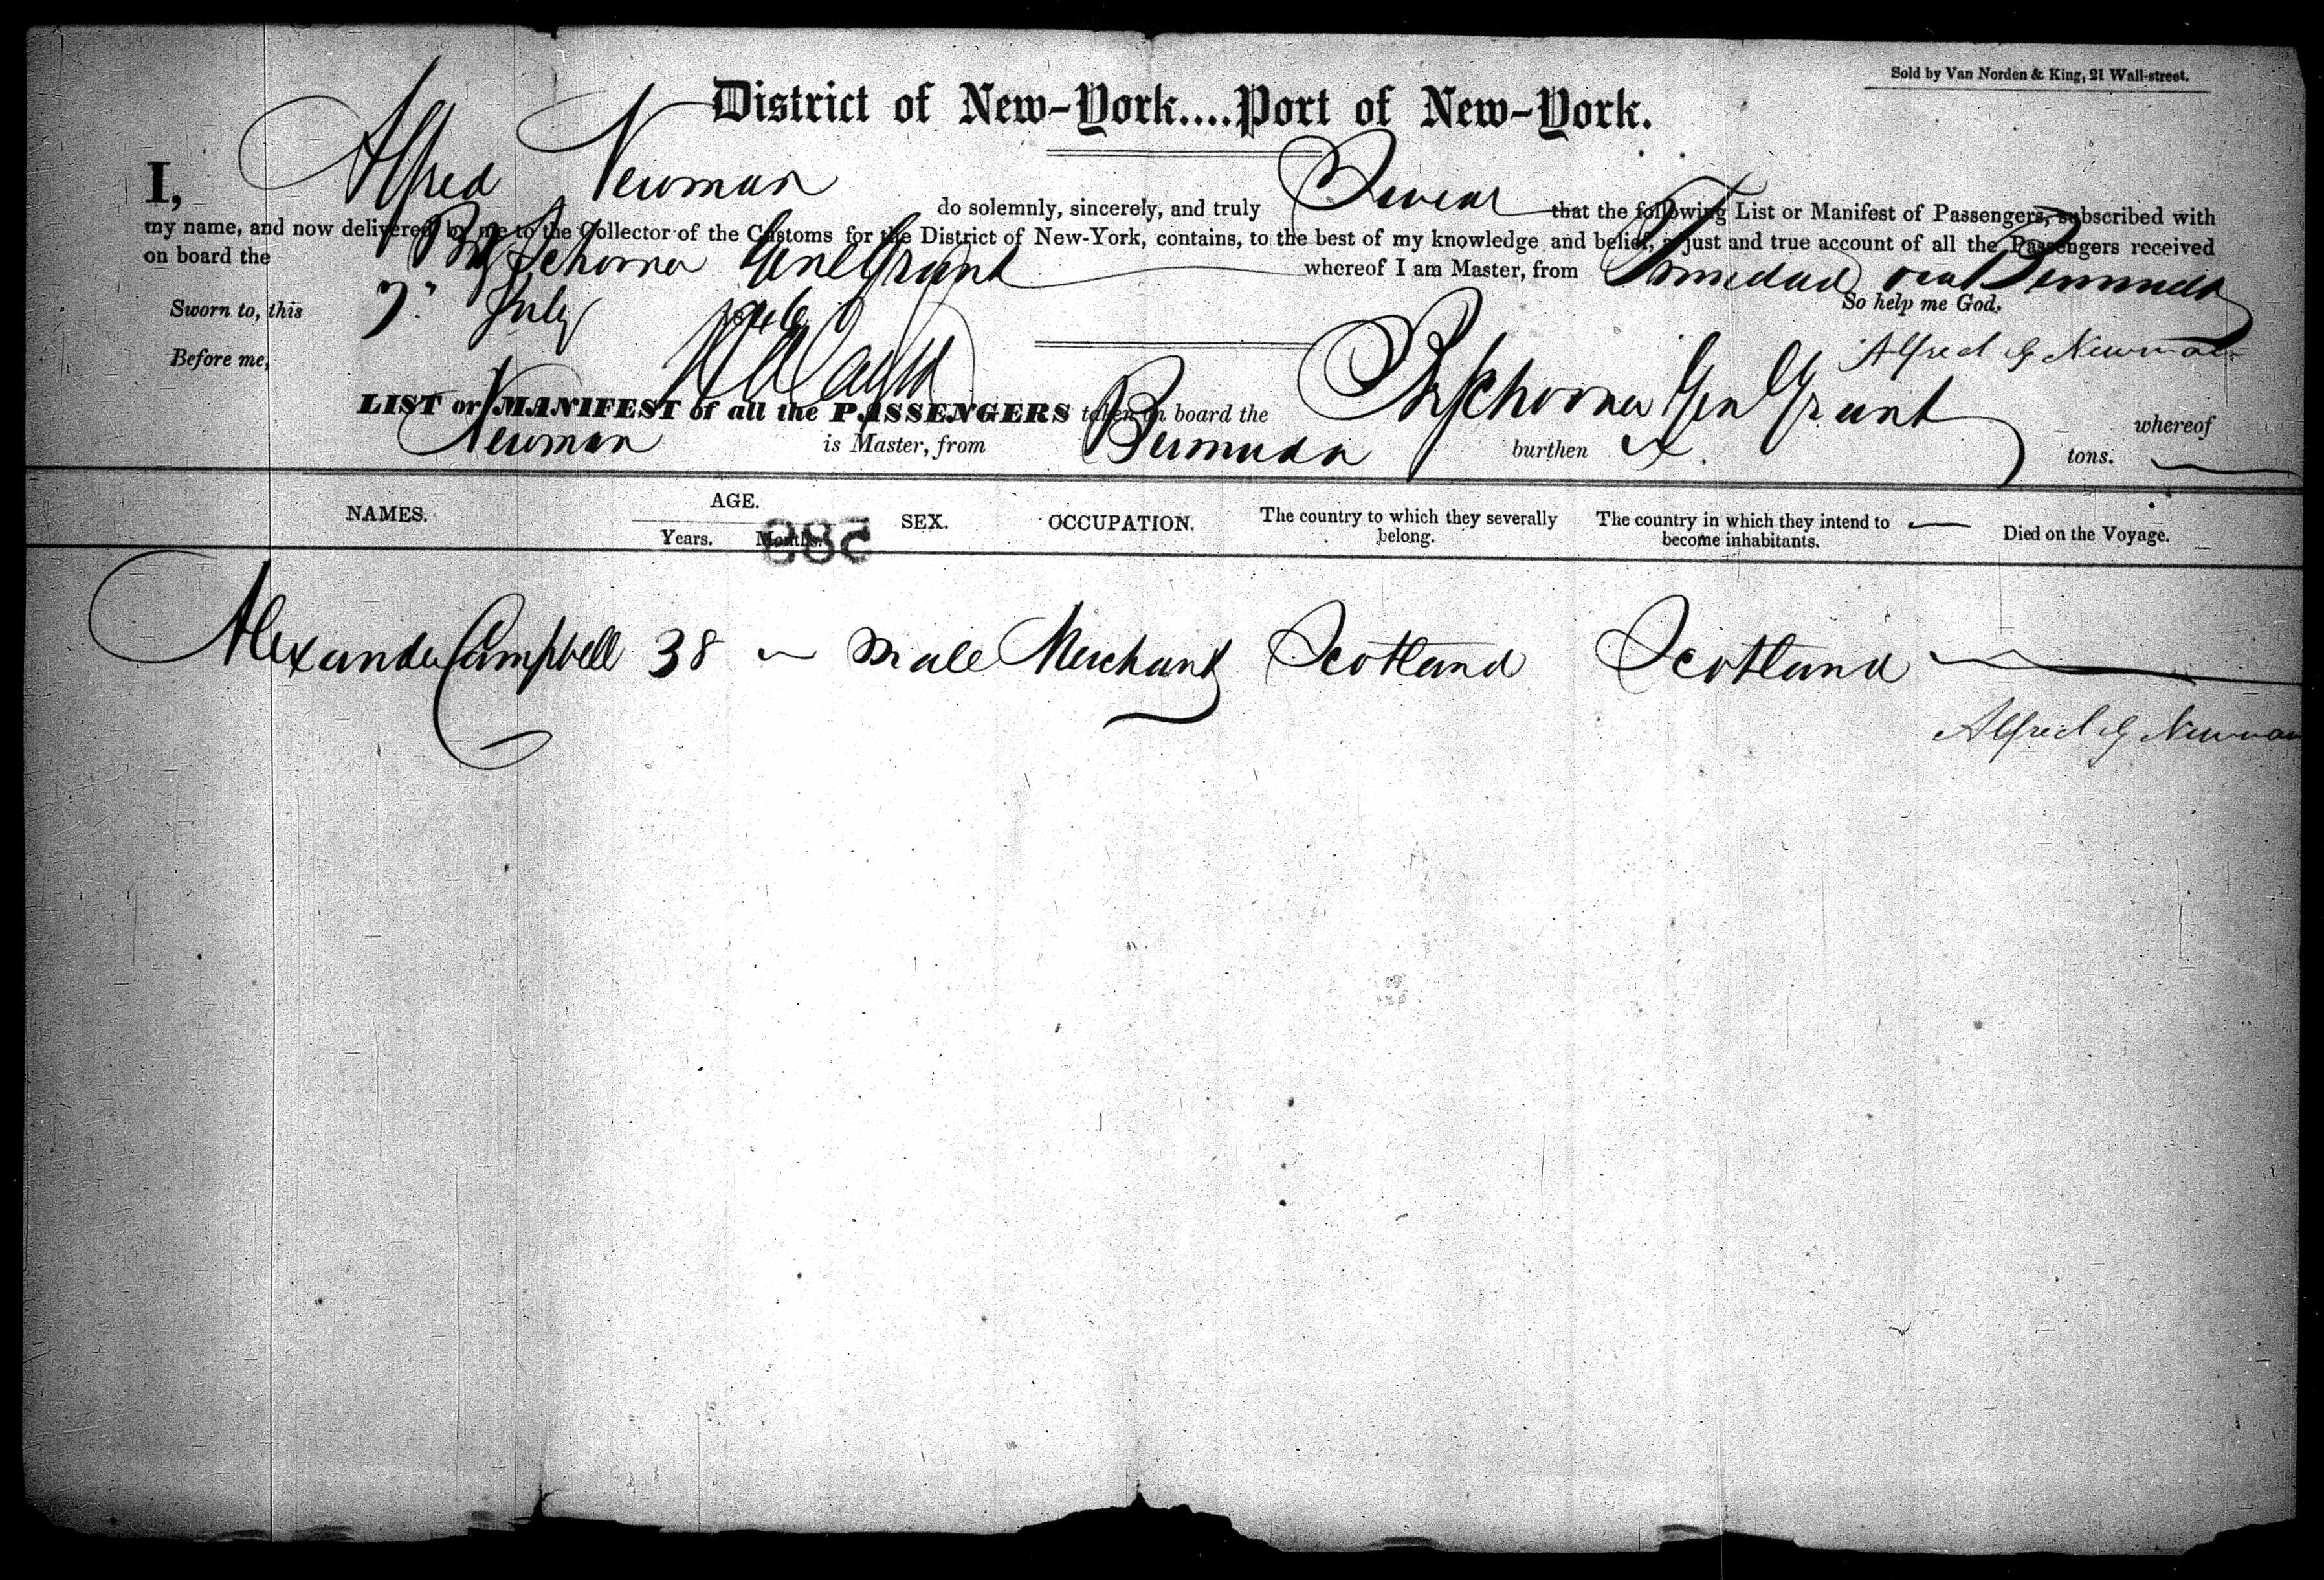 Sold by Van Norden & King, 21 Wall-street.
District of New-York....Port of New-York.
I, Alfred Newman do solemnly, sincerely, and truly Swear that the following List or Manifest of Passengers, subscribed with
my name, and now delivered by me to the Collector of the Customs for the District of New-York, contains, to the best of my knowledge and belief, a just and true account of all the Passengers received
on board the Schooner Genl Grant whereof I am Master, from Trinidad via Bermuda
Sworn to, this 7" July 1846 So help me God.
Before me, Alfred G Newman
LIST or MANIFEST of all the PASSENGERS taken on board the Schooner Gen Grant whereof
Newman is Master, from Bermuda burthen tons.
NAMES. AGE. Years. Months. SEX. OCCUPATION. The country to which they severally belong. The country in which they intend to become inhabitants. Died on the Voyage.
589
Alexander Campbell 38 male Merchant Scotland Scotland
Alfred G Newman